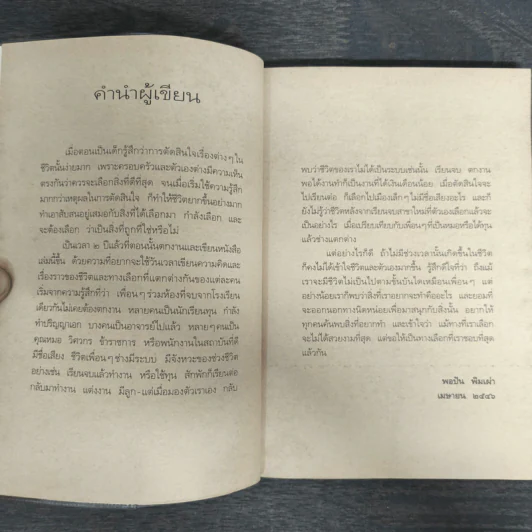 คำนำผู้เขียน
เมื่อตอนเป็นเด็กรู้สึกว่าการตัดสินใจเรื่องต่างๆใน
ชีวิตนั้นง่ายมาก เพราะครอบครัวและตัวเองต่างมีความเห็น
ตรงกันว่าควรจะเลือกสิ่งที่ดีที่สุด จนเมื่อเริ่มใช้ความรู้สึก
มากกว่าเหตุผลในการตัดสินใจ ก็ทำให้ชีวิตยากขึ้นอย่างมาก
ทำเอาสับสนอยู่เสมอกับสิ่งที่ได้เลือกมา กำลังเลือก และ
จะต้องเลือก ว่าเป็นสิ่งที่ถูกที่ใช่หรือไม่
เป็นเวลา ๒ ปีแล้วที่ตอนนั้นตกงานและเขียนหนังสือ
เล่มนี้ขึ้น ด้วยความที่อยากจะใช้วันเวลาเขียนความคิดและ
เรื่องราวของชีวิตและทางเลือกที่แตกต่างกันของแต่ละคน
เริ่มจากความรู้สึกที่ว่า เพื่อนๆร่วมห้องที่จบจากโรงเรียน
เดียวกันไม่เคยต้องตกงาน หลายคนเป็นนักเรียนทุน กำลัง
ทำปริญญาเอก บางคนเป็นอาจารย์ไปแล้ว หลายๆคนเป็น
คุณหมอ วิศวกร ข้าราชการ หรือพนักงานในสถาบันที่ดี
มีชื่อเสียง ชีวิตเพื่อนๆช่างมีระบบ มีจังหวะของช่วงชีวิต
อย่างเช่น เรียนจบแล้วทำงาน หรือใช้ทุน สักพักก็เรียนต่อ
กลับมาทำงาน แต่งงาน มีลูก-แต่เมื่อมองตัวเราเอง กลับ
พบว่าชีวิตของเราไม่ได้เป็นระบบเช่นนั้น เรียนจบ ตกงาน
พอได้งานทำก็เป็นงานที่ได้เงินเดือนน้อย เมื่อตัดสินใจจะ
ไปเรียนต่อ ก็เลือกไปเมืองเล็กๆไม่มีชื่อเสียงอะไร และก็
ยังไม่รู้ว่าชีวิตหลังจากเรียนจบสาขาใหม่ที่ตัวเองเลือกแล้วจะ
เป็นอย่างไร เมื่อเปรียบเทียบกับเพื่อนๆที่เป็นหมอหรือได้ทุน
แล้วช่างแตกต่าง
แต่อย่างไรก็ดี ถ้าไม่มีช่วงเวลานั้นเกิดขึ้นในชีวิต
ก็คงไม่ได้เข้าใจชีวิตและตัวเองมากขึ้น รู้สึกดีใจที่ว่า ถึงแม้
เราจะมีชีวิตไม่เป็นไปตามขั้นบันไดเหมือนเพื่อนๆ แต่
อย่างน้อยเราก็พบว่าสิ่งที่เราอยากจะทำคืออะไร และยอมที่
จะออกนอกทางนิดหน่อยเพื่อมาสนุกกับสิ่งนั้น อยากให้
ทุกคนค้นพบสิ่งที่อยากทำ และเข้าใจว่า แม้ทางที่เราเลือก
จะไม่ได้สวยงามที่สุด แต่ขอให้เป็นทางเลือกที่เราชอบที่สุด
แล้วกัน
พอปัน พิมเผ่า
เมษายน ๒๕๔๖